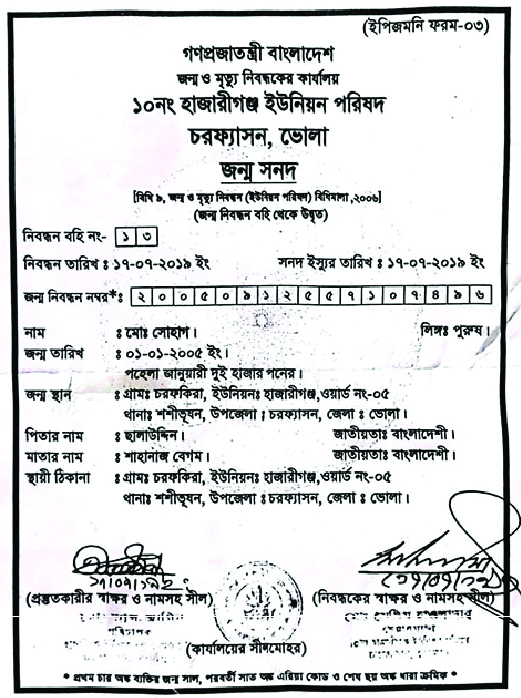 (ইপিজমনি ফরম-০৩)
গণপ্রজাতন্ত্রী বাংলাদেশ
জন্ম ও মৃত্যু নিবন্ধকের কার্যালয়
১০নং হাজারীগঞ্জ ইউনিয়ন পরিষদ
চরফ্যাসন, ভোলা
জন্ম সনদ
[বিধি ৯, জন্ম ও মৃত্যু নিবন্ধন (ইউনিয়ন পরিষদ) বিধিমালা ,২০০৬]
(জন্ম নিবন্ধন বহি থেকে উদ্ধৃত)
নিবন্ধন বহি নং- ১ ৩
নিবন্ধন তারিখ ঃ ১৭-০৭-২০১৯ ইং সনদ ইস্যুর তারিখ ঃ ১৭-০৭-২০১৯ ইং
জন্ম নিবন্ধন নম্বর*ঃ ২ ০ ০ ৫ ০ ৯ ১ ২ ৫ ৫ ৭ ১ ০ ৭ ৪ ৯ ৬
নাম ঃ মোঃ সোহাগ। লিঙ্গঃ পুরুষ।
জন্ম তারিখ ঃ ০১-০১-২০০৫ ইং।
পহেলা জানুয়ারী দুই হাজার পনের।
জন্ম স্থান ঃ গ্রামঃ চরফকিরা, ইউনিয়নঃ হাজারীগঞ্জ,ওয়ার্ড নং-০৫
থানাঃ শশীভূষন, উপজেলা ঃ চরফ্যাসন, জেলা ঃ ভোলা।
পিতার নাম ঃ ছালাউদ্দিন। জাতীয়তাঃ বাংলাদেশী।
মাতার নাম ঃ শাহানাজ বেগম। জাতীয়তাঃ বাংলাদেশী।
স্থায়ী ঠিকানা ঃ গ্রামঃ চরফকিরা, ইউনিয়নঃ হাজারীগঞ্জ,ওয়ার্ড নং-০৫
থানাঃ শশীভূষন, উপজেলা ঃ চরফ্যাসন, জেলা ঃ ভোলা।
(প্রস্তুতকারীর স্বাক্ষর ও নামসহ সীল) (নিবন্ধকের স্বাক্ষর ও নামসহ সীল)
(কার্যালয়ের সীলমোহর)
* প্রথম চার অঙ্ক ব্যক্তির জন্ম সাল, পরবর্তী সাত অঙ্ক এরিয়া কোড ও শেষ ছয় অঙ্ক ধারা ক্রমিক *